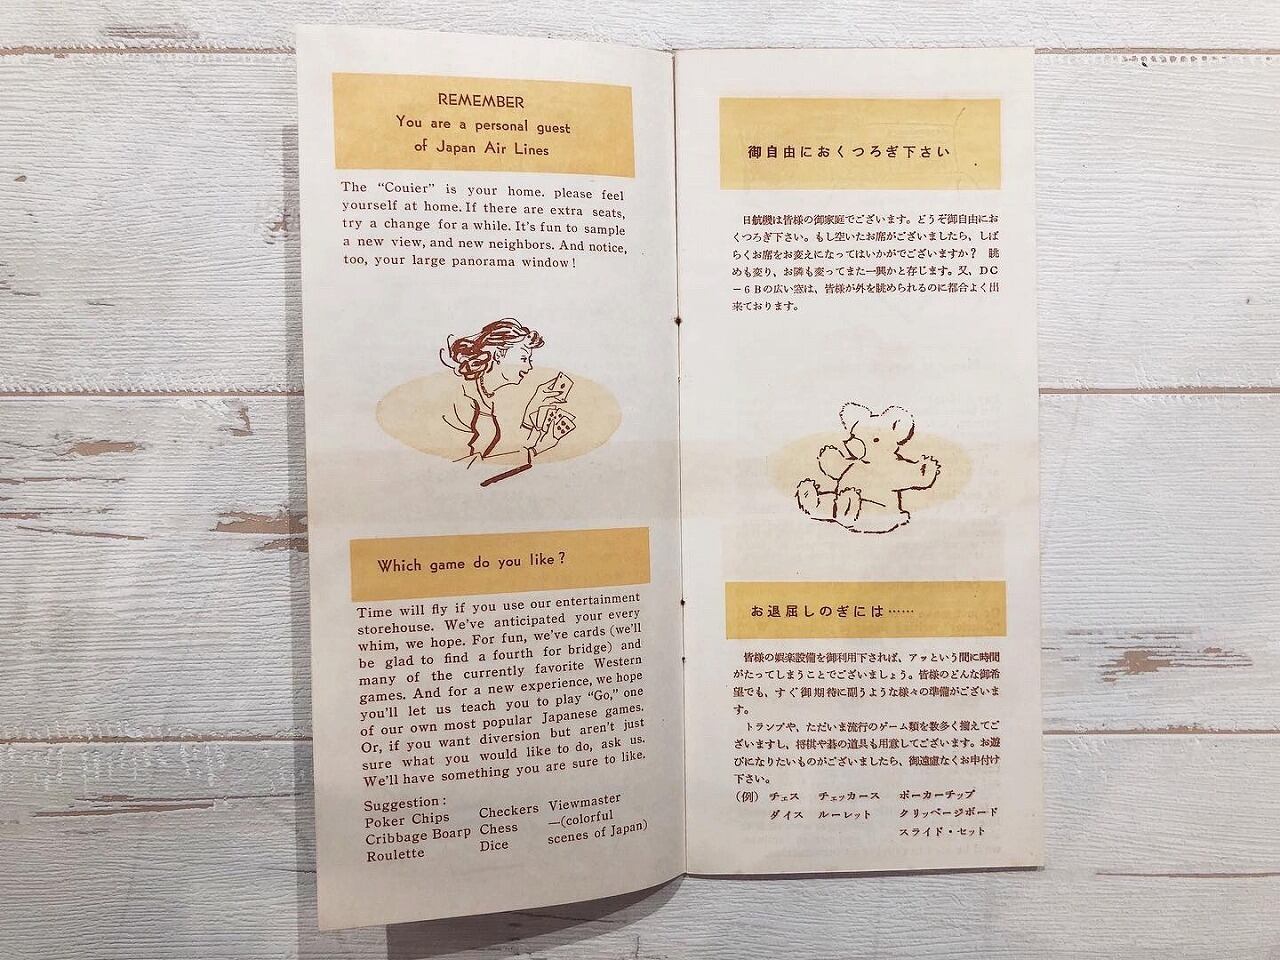 REMEMBER
You are a personal guest
of Japan Air Lines
The “Couier” is your home. please feel
yourself at home. If there are extra seats,
try a change for a while. It's fun to sample
a new view, and new neighbors. And notice,
too, your large panorama window!
Which game do you like?
Time will fly if you use our entertainment
storehouse. We've anticipated your every
whim, we hope. For fun, we've cards (we'll
be glad to find a fourth for bridge) and
many of the currently favorite Western
games. And for a new experience, we hope
you'll let us teach you to play “Go,” one
of our own most popular Japanese games.
Or, if you want diversion but aren't just
sure what you would like to do, ask us.
We'll have something you are sure to like.
Suggestion:
Poker Chips Checkers Viewmaster
Cribbage Boarp Chess —(colorful
Roulette Dice scenes of Japan)
御自由におくつろぎ下さい
日航機は皆様の御家庭でございます。どうぞ御自由にお
くつろぎ下さい。もし空いたお席がございましたら、しば
らくお席をお変えになってはいかがでございますか？ 眺
めも変り、お隣も変ってまた一興かと存じます。又、DC
－6Bの広い窓は、皆様が外を眺められるのに都合よく出
来ております。
お退屈しのぎには……
皆様の娯楽設備を御利用下されば、アッという間に時間
がたってしまうことでございましょう。皆様のどんな御希
望でも、すぐ御期待に副うような様々の準備がございま
す。
トランプや、ただいま流行のゲーム類を数多く揃えてご
ざいますし、将棋や碁の道具も用意してございます。お遊
びになりたいものがございましたら、御遠慮なくお申付け
下さい。
（例） チェス チェッカース ポーカーチップ
ダイス ルーレット クリッベージボード
スライド・セット